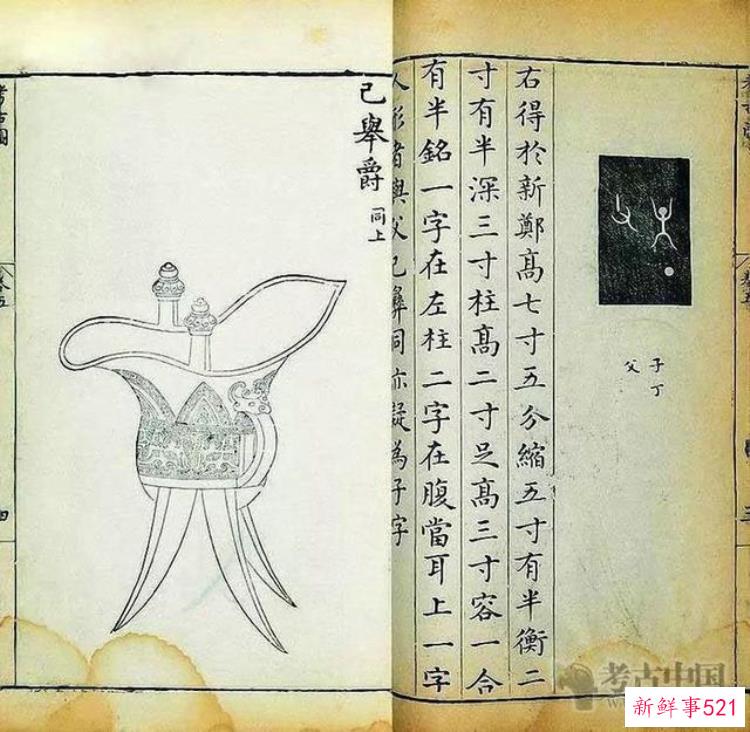 子丁
父
右得於新鄭高七寸五分縮五寸有半衡二
寸有半深三寸柱高二寸足高三寸容一合
有半銘一字在左柱二字在腹當耳上一字
人形者與父己彝同亦疑為子字
己舉爵 同上
考古圖
卷五
四
考古中国
新鲜事521